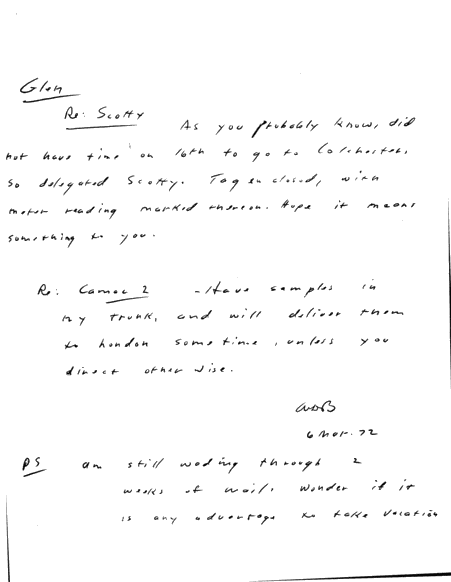 Glen
Re: Scotty As you probably know, did
not have time on 16th to go to Colchester,
so delegated Scotty. Tag enclosed, with
meter reading marked thereon. Hope it means
something to you.
Re: Camac 2 - Have samples in
my trunk, and will deliver them
to London sometime, unless you
direct otherwise.
WDB
6 Mar. 72
PS am still wading through 2
weeks of mail. Wonder if it
is any advantage to take vacation